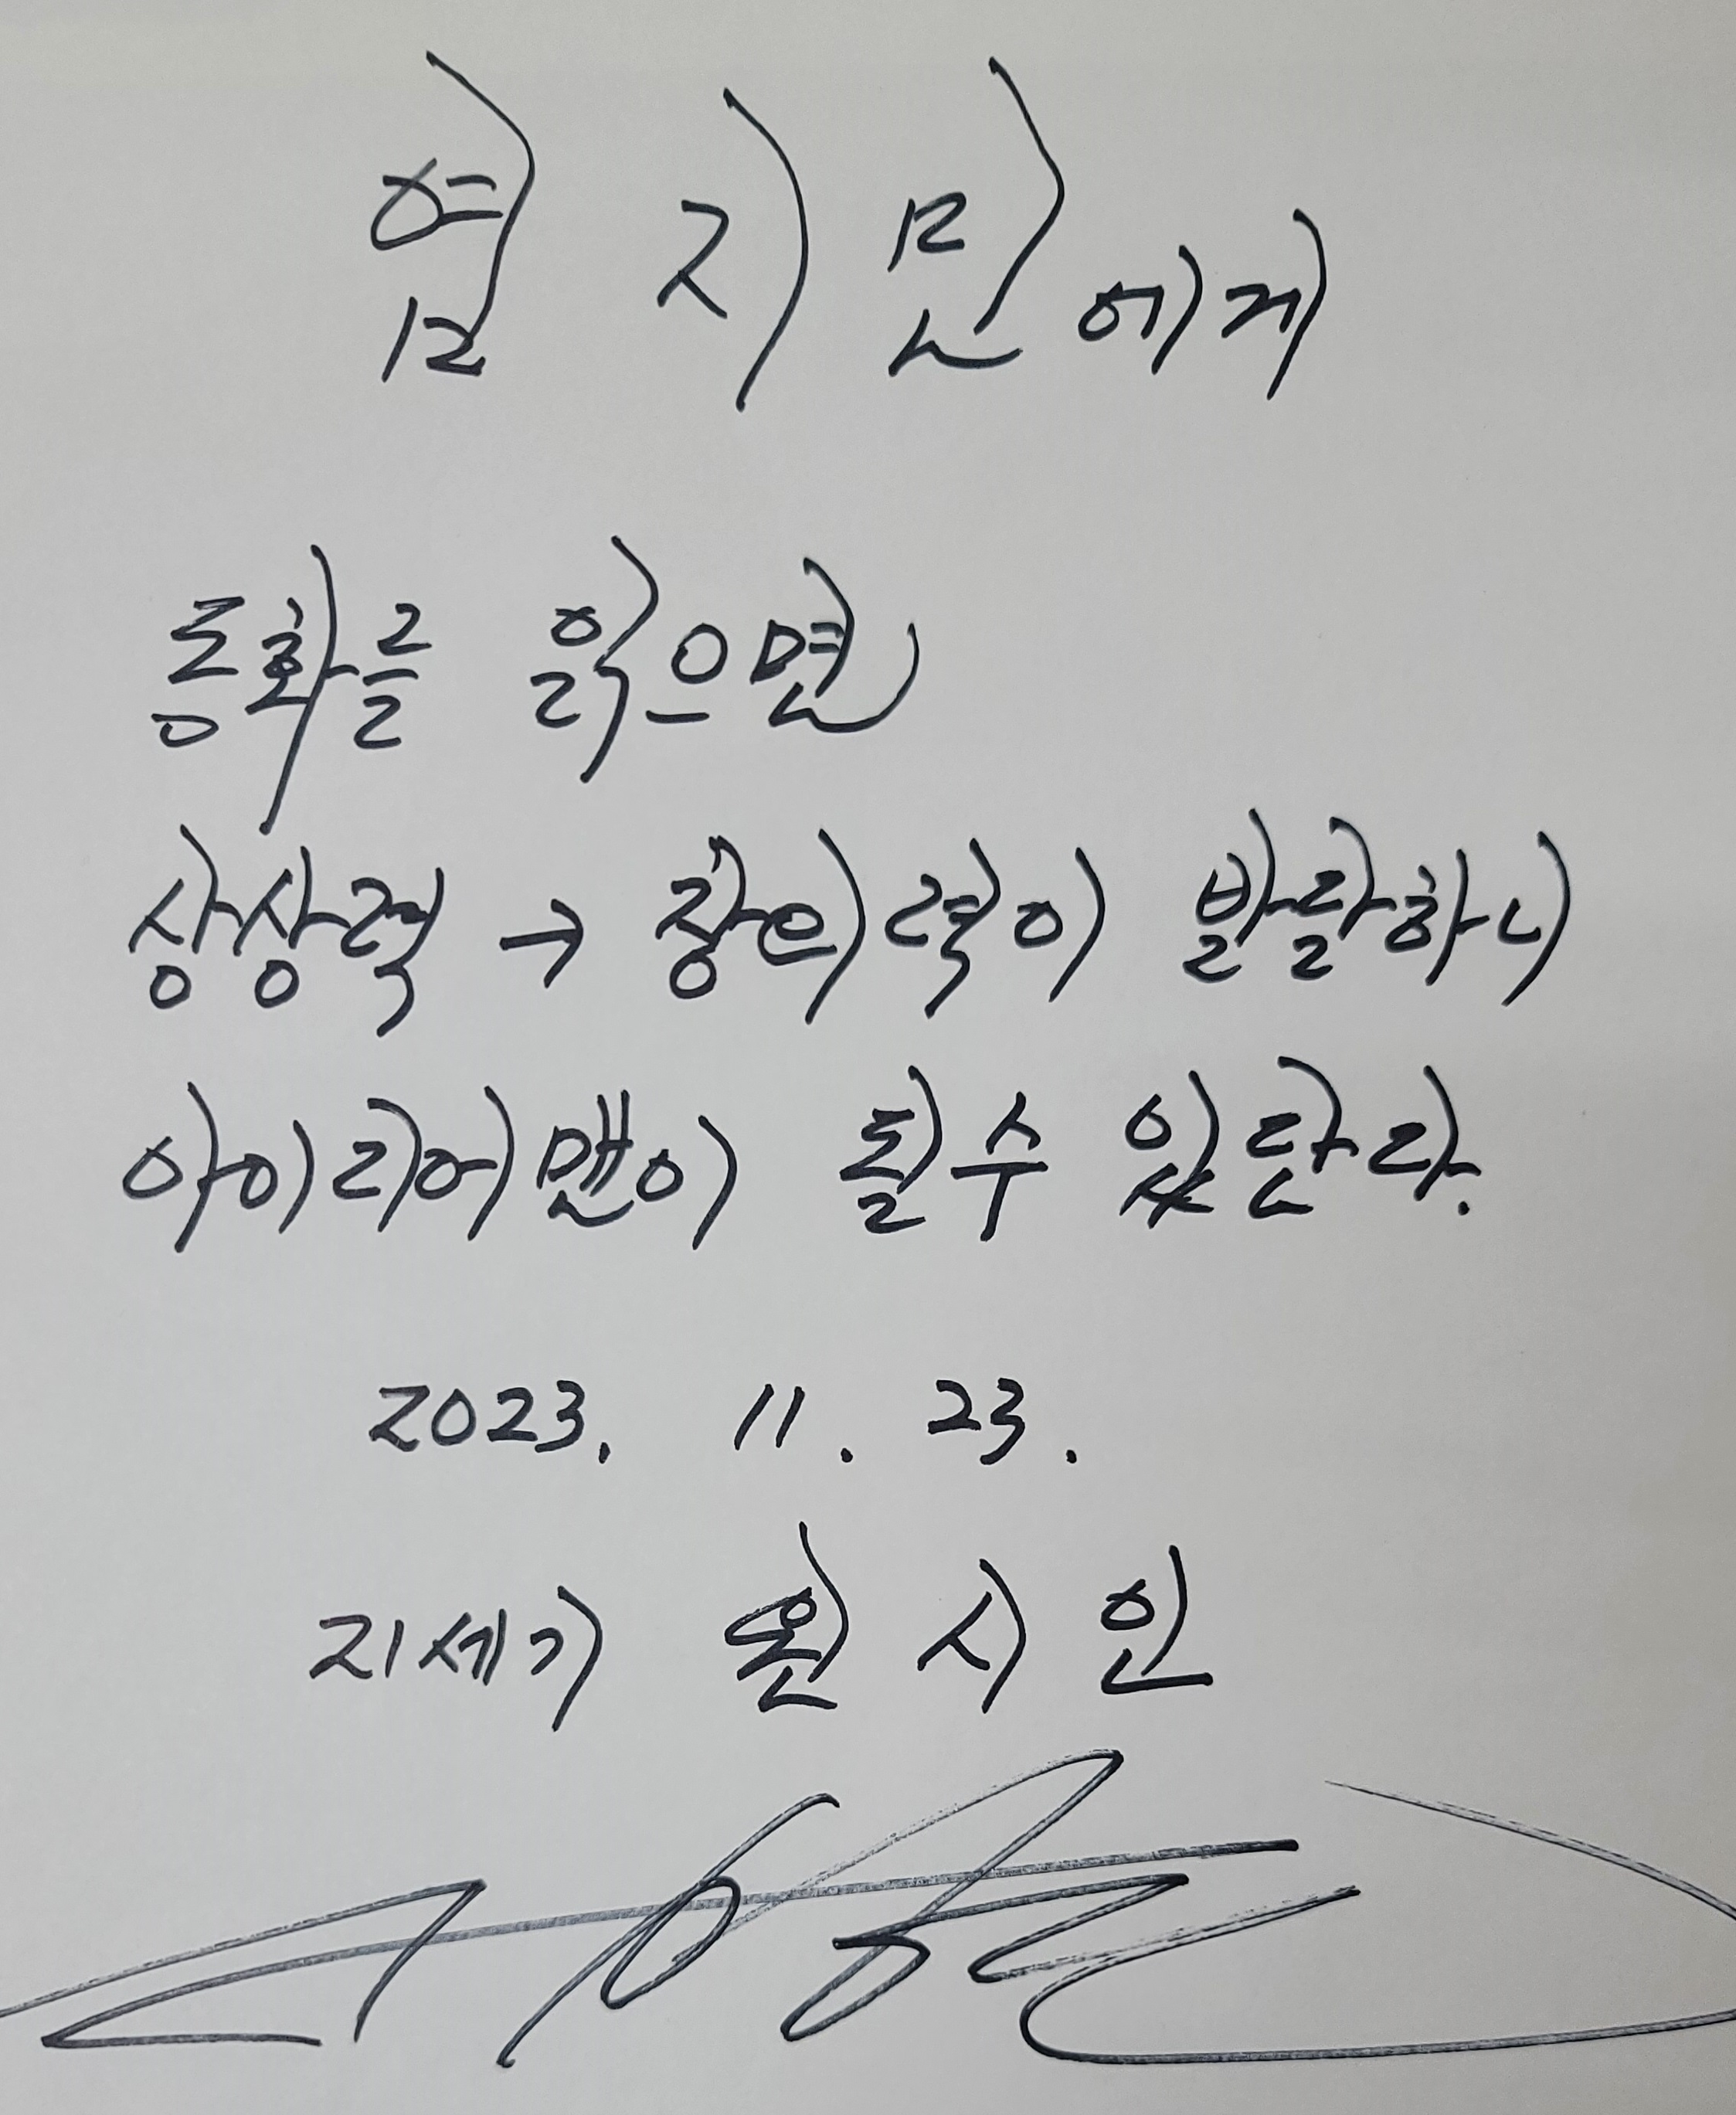 염지민에게
동화를 읽으면
상상력 → 창의력이 발달하니
아이리어맨이 될 수 있단다.
2023. 11. 23.
21세기 원시인